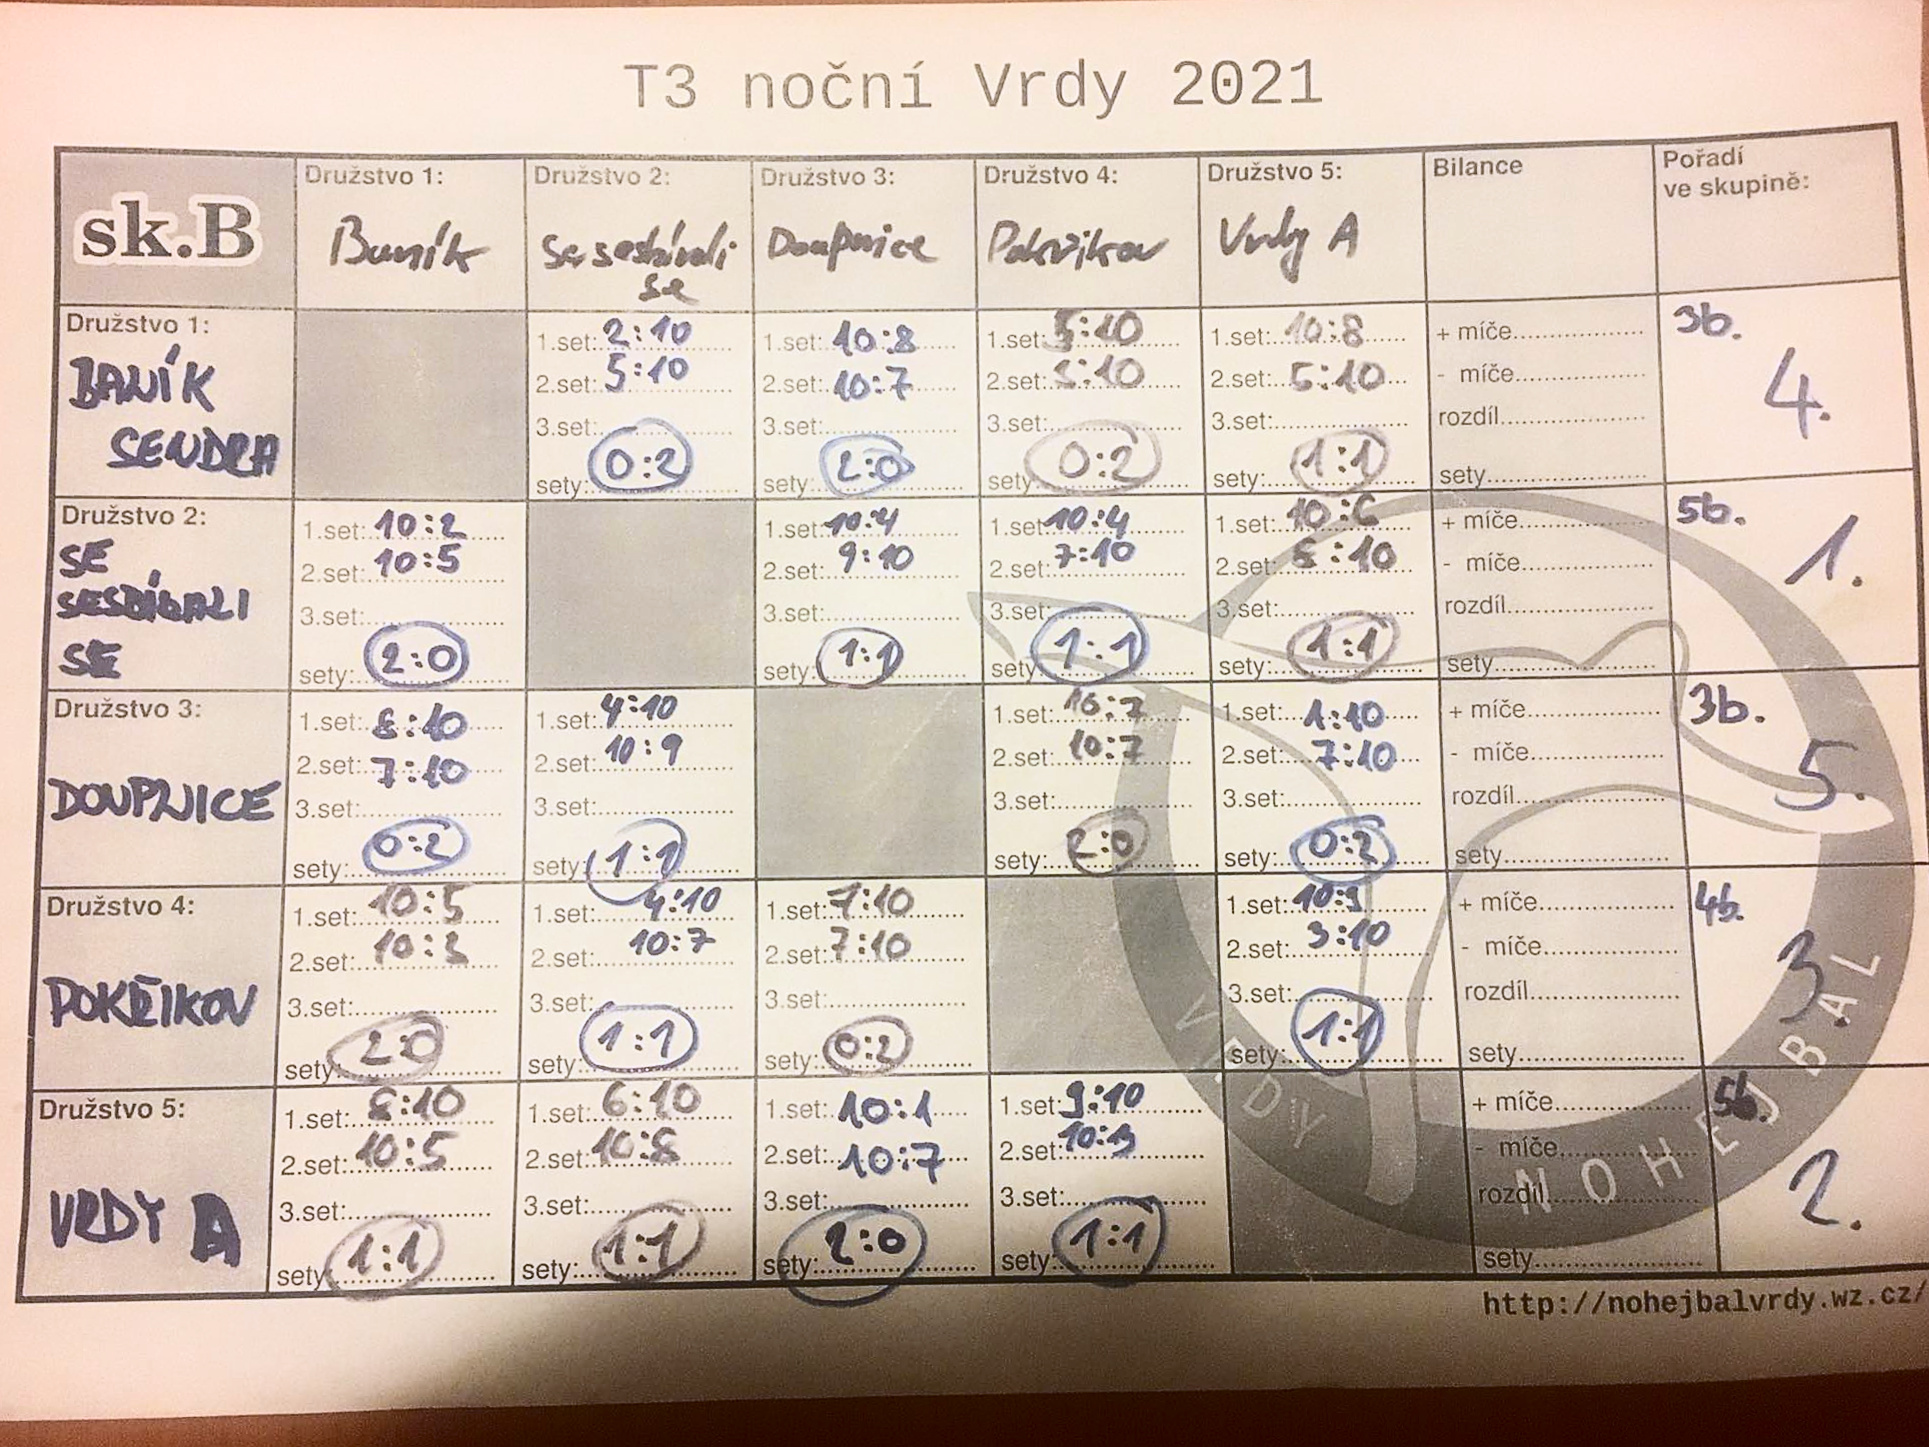 T3 noční Vrdy 2021
sk.B
Družstvo 1:
Baník
Družstvo 2:
Se sesbírali
se
Družstvo 3:
Doupnice
Družstvo 4:
Pokřikov
Družstvo 5:
Vrdy A
Bilance
Pořadí
ve skupině:
Družstvo 1:
BANÍK
SENDRA
1.set: 2:10
2.set: 5:10
3.set:
sety: 0:2
1.set: 10:8
2.set: 10:7
3.set:
sety: 2:0
1.set: 5:10
2.set: 3:10
3.set:
sety: 0:2
1.set: 10:8
2.set: 5:10
3.set:
sety: 1:1
+ míče
- míče
rozdíl
sety
3b.
4.
Družstvo 2:
SE
SESBÍRALI
SE
1.set: 10:2
2.set: 10:5
3.set:
sety: 2:0
1.set: 10:4
2.set: 9:10
3.set:
sety: 1:1
1.set: 10:4
2.set: 7:10
3.set:
sety: 1:1
1.set: 10:6
2.set: 8:10
3.set:
sety: 1:1
+ míče
- míče
rozdíl
sety
5b.
1.
Družstvo 3:
DOUPNICE
1.set: 8:10
2.set: 7:10
3.set:
sety: 0:2
1.set: 4:10
2.set: 10:9
3.set:
sety: 1:1
1.set: 10:7
2.set: 10:7
3.set:
sety: 2:0
1.set: 1:10
2.set: 7:10
3.set:
sety: 0:2
+ míče
- míče
rozdíl
sety
3b.
5.
Družstvo 4:
POKŘIKOV
1.set: 10:5
2.set: 10:3
3.set:
sety: 2:0
1.set: 4:10
2.set: 10:7
3.set:
sety: 1:1
1.set: 7:10
2.set: 7:10
3.set:
sety: 0:2
1.set: 10:9
2.set: 3:10
3.set:
sety: 1:1
+ míče
- míče
rozdíl
sety
4b.
3.
Družstvo 5:
VRDY A
1.set: 8:10
2.set: 10:5
3.set:
sety: 1:1
1.set: 6:10
2.set: 10:8
3.set:
sety: 1:1
1.set: 10:1
2.set: 10:7
3.set:
sety: 2:0
1.set: 9:10
2.set: 10:3
3.set:
sety: 1:1
+ míče
- míče
rozdíl
sety
5b.
2.
VRDY NOHEJBAL
http://nohejbalvrdy.wz.cz/